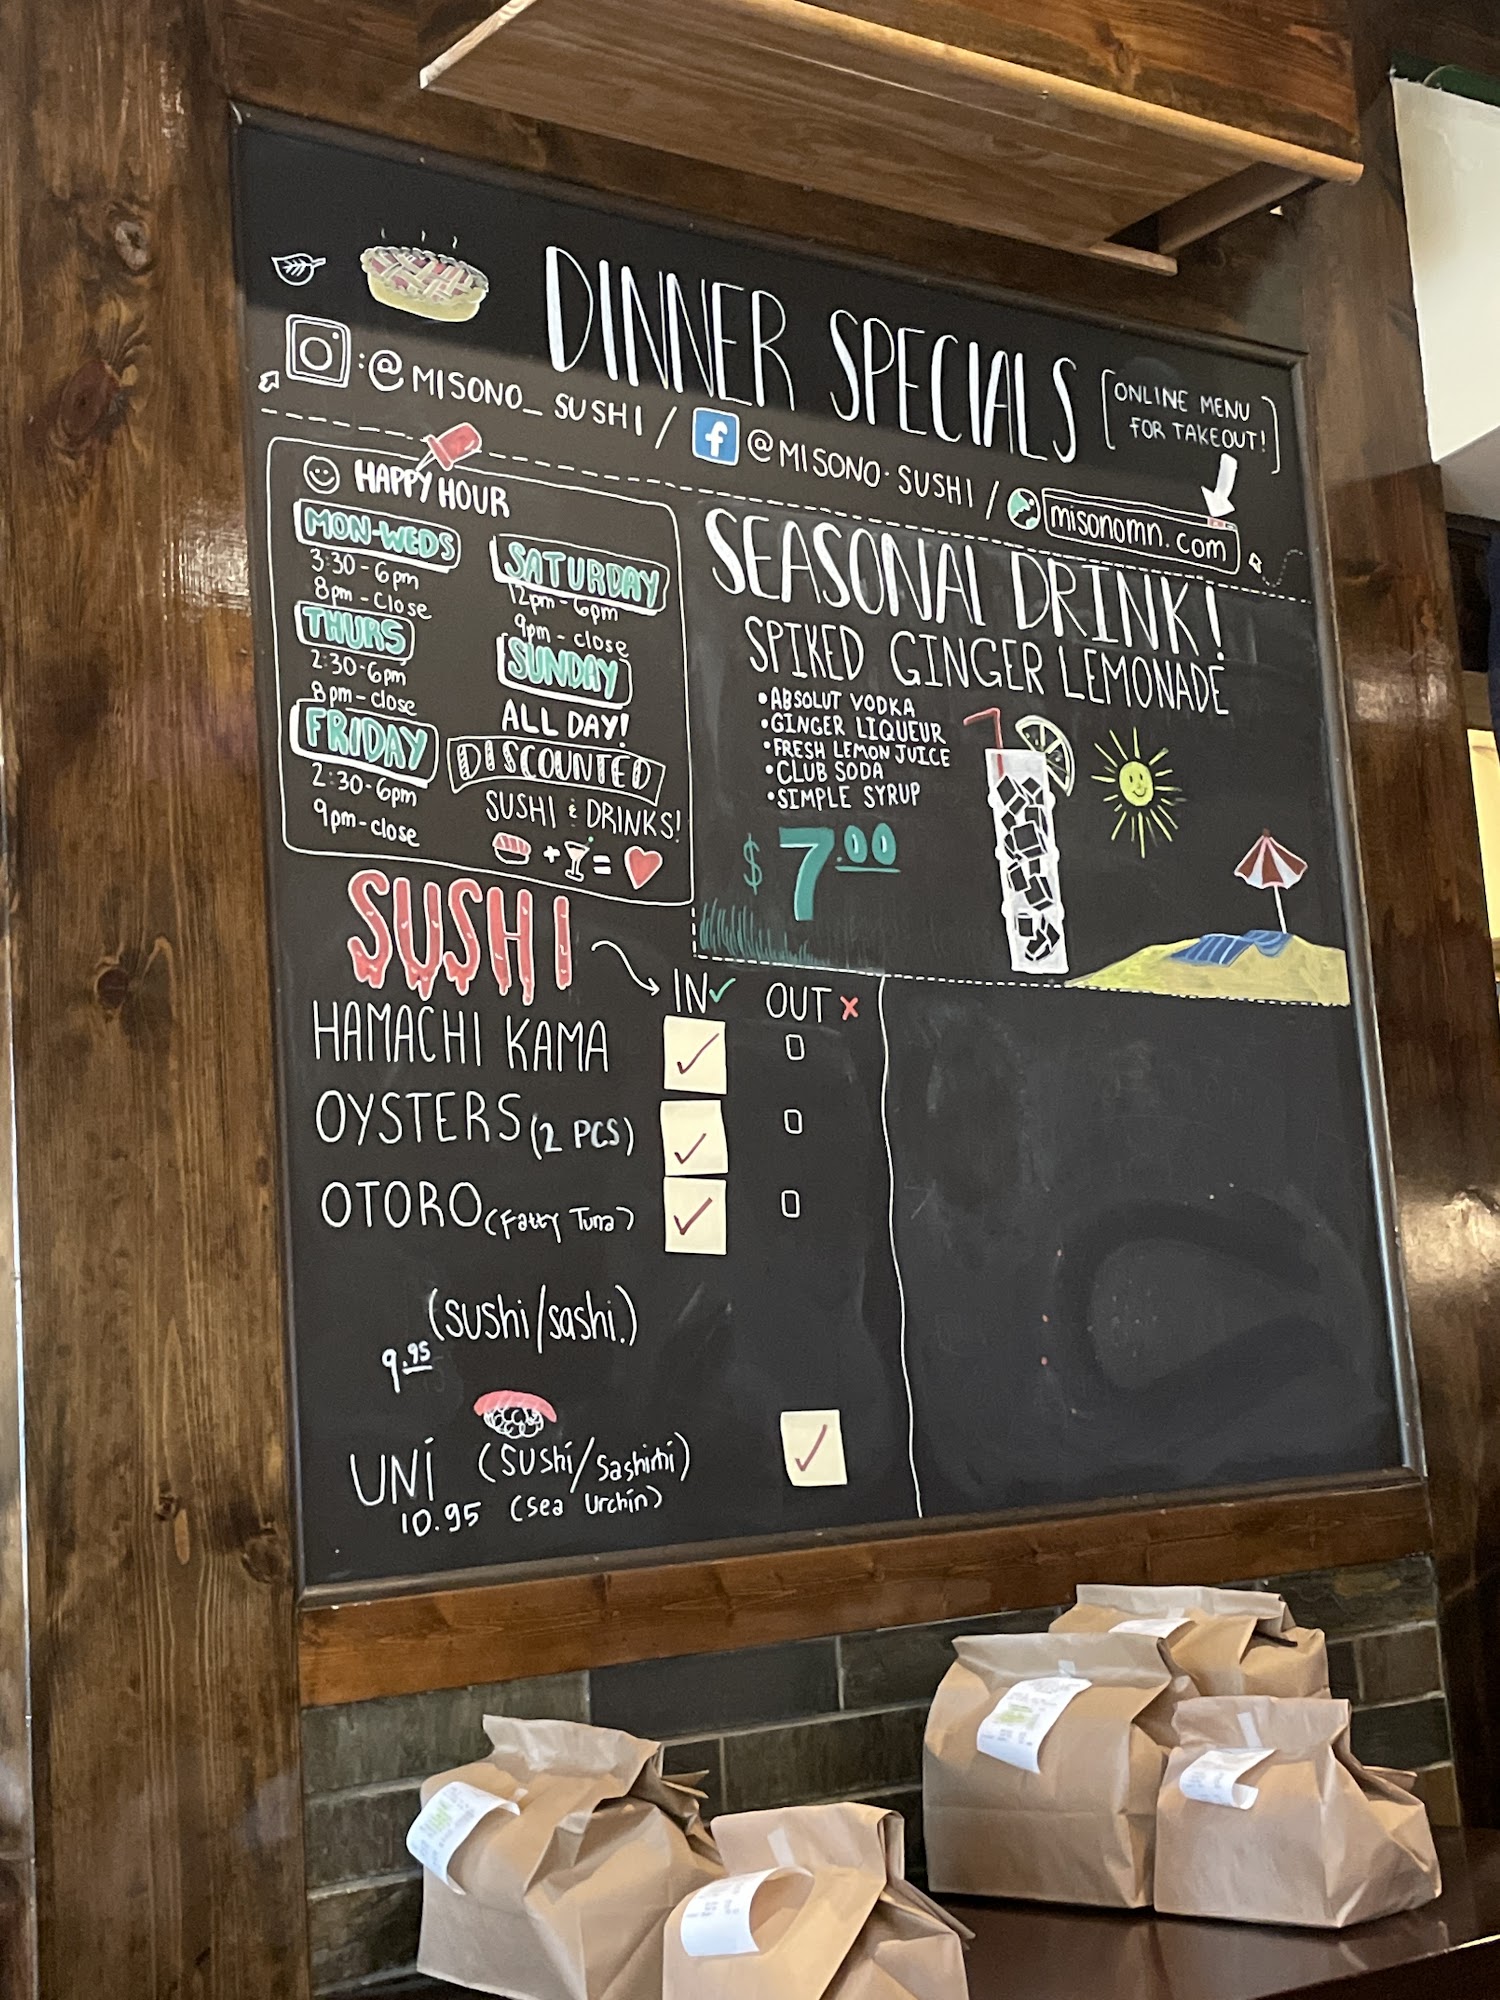 DINNER SPECIALS
:@MISONO_SUSHI / f @MISONO.SUSHI / misonomn.com
ONLINE MENU
FOR TAKEOUT!
HAPPY HOUR
MON-WEDS
3:30-6pm
8pm-close
THURS
2:30-6pm
8pm-close
FRIDAY
2:30-6pm
9pm-close
SATURDAY
12pm-6pm
9pm-close
SUNDAY
ALL DAY!
DISCOUNTED
SUSHI & DRINKS!
+ =
SEASONAL DRINK!
SPIKED GINGER LEMONADE
•ABSOLUT VODKA
•GINGER LIQUEUR
•FRESH LEMON JUICE
•CLUB SODA
•SIMPLE SYRUP
$7.00
SUSHI
IN✓ OUT x
HAMACHI KAMA
OYSTERS (2 PCS)
OTORO (Fatty Tuna)
(sushi/sashi.)
9.95
UNI (sushi/sashimi)
10.95 (sea urchin)